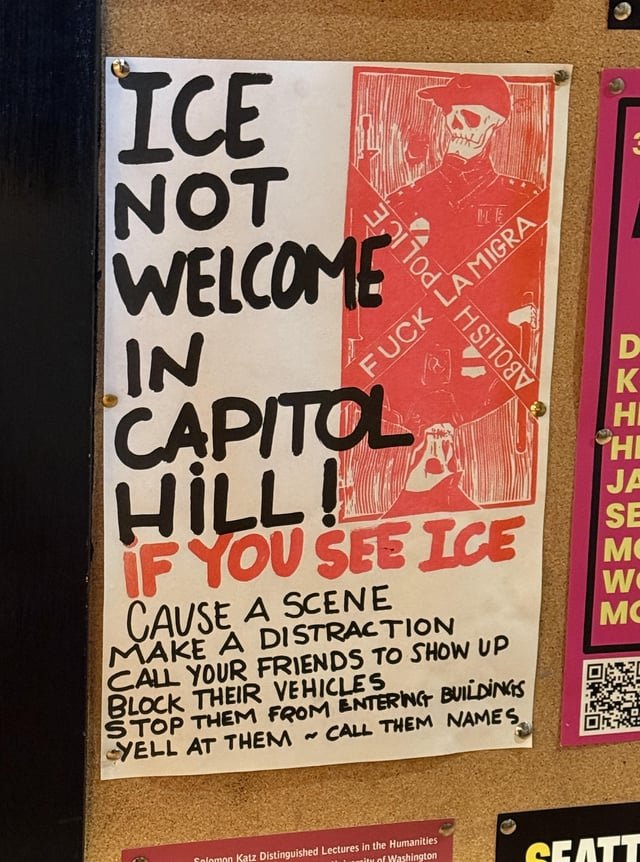 ICE
NOT
WELCOME
IN
CAPITOL
HiLL!
FUCK LA MIGRA
ABOLISH POLICE
iF YOU SEE ICE
CAUSE A SCENE
MAKE A DISTRACTION
CALL YOUR FRIENDS TO SHOW UP
BLOCK THEIR VEHICLES
STOP THEM FROM ENTERING BUiLDiNGS
YELL AT THEM ~ CALL THEM NAMES
Solomon Katz Distinguished Lectures in the Humanities
of Washington
SEATT